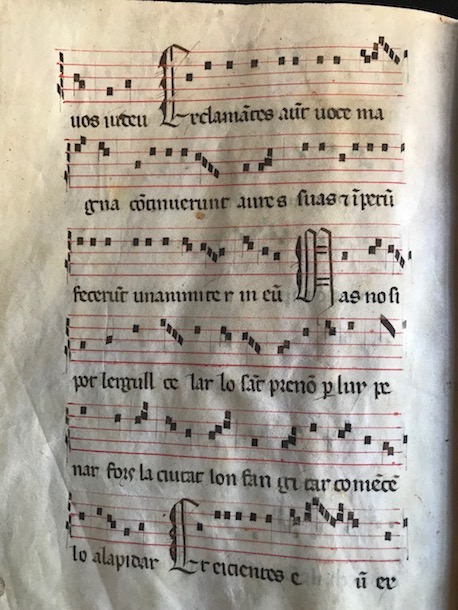 uos iuteu Exclamātes aūt uoce ma
gna cōtinuerunt aures suas ⁊ īpetū
fecerūt unanimiter in eū Mas no si
pot lergull ce lar lo sāt prenō p lur pe
nar fors la ciutat lon fan gitar comēcē
lo alapidar Et eicientes e ū ex